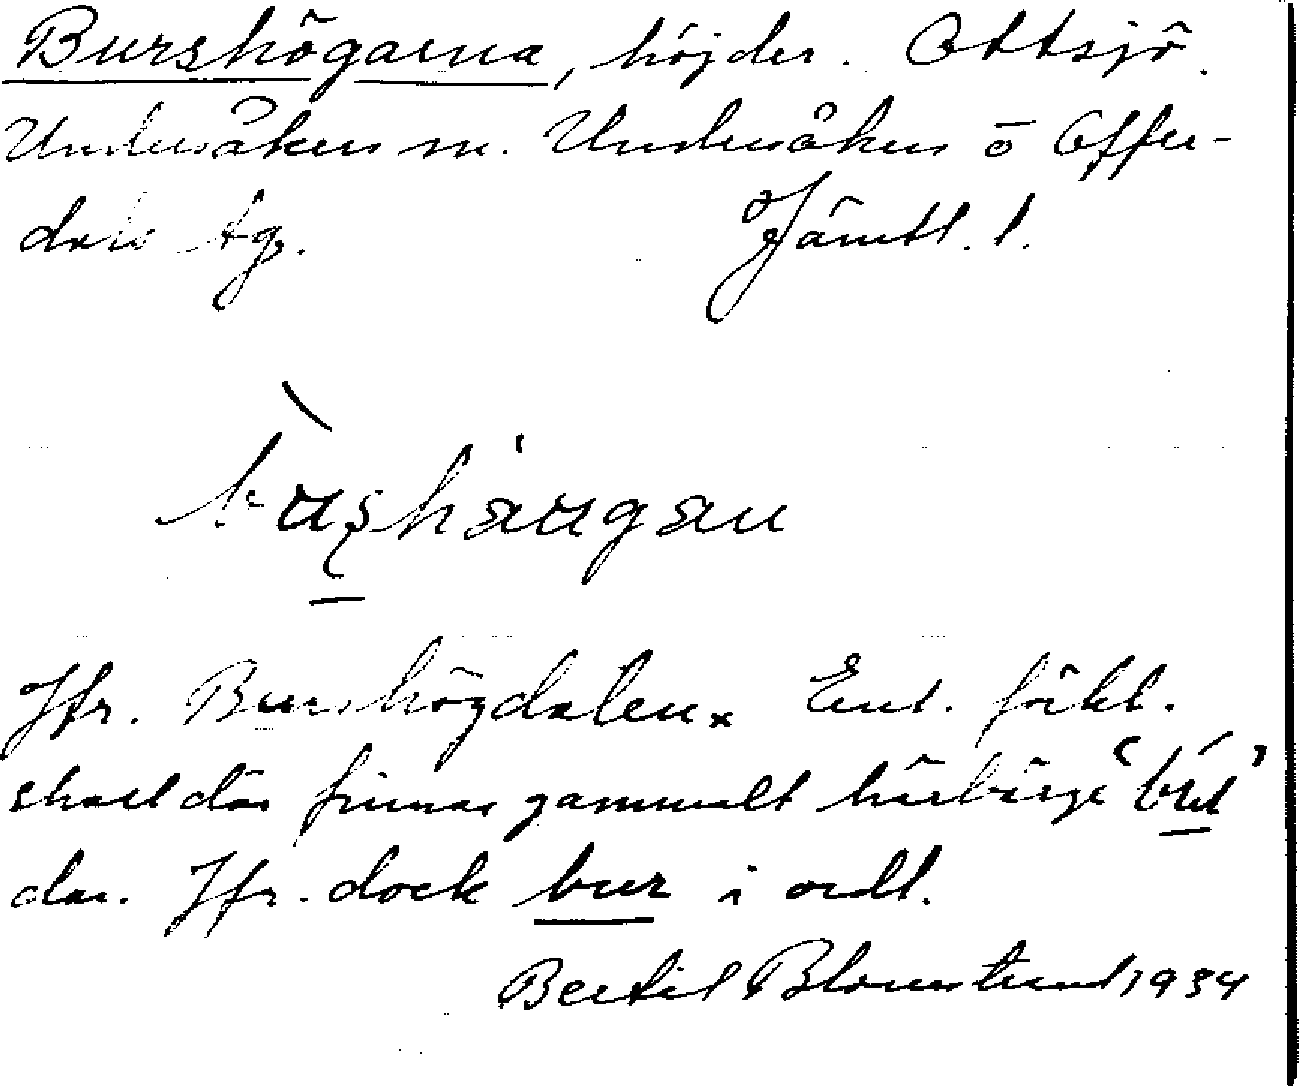 Burshögarna, höjder. Ottsjö.
Undersåkers sn. Undersåkers o Offer-
dals tg. Jämtl. l.
Jfr. Burshögdalen. Enl. folkl.
skall där finnas gammalt härbärge
där. Jfr. dock bur i ordl.
Bertil Blomstrand 1934